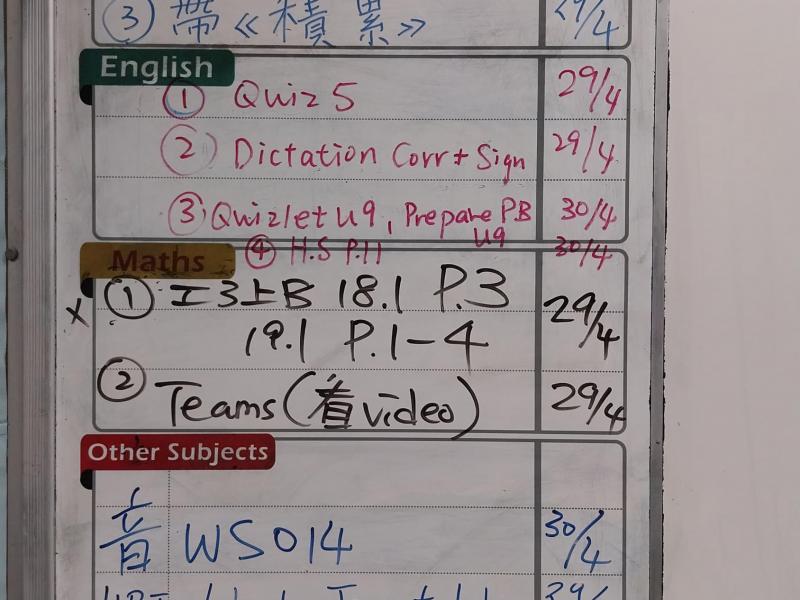 ③ 帶《積累》 29/4
English
① Quiz 5 29/4
② Dictation Corr + Sign 29/4
③ Quizlet U9, Prepare P.B U9 30/4
④ H.S P.11 30/4
Maths
× ① 工3上B 18.1 P.3 29/4
19.1 P.1-4
② Teams (看video) 29/4
Other Subjects
音 WS014 30/4
29/4